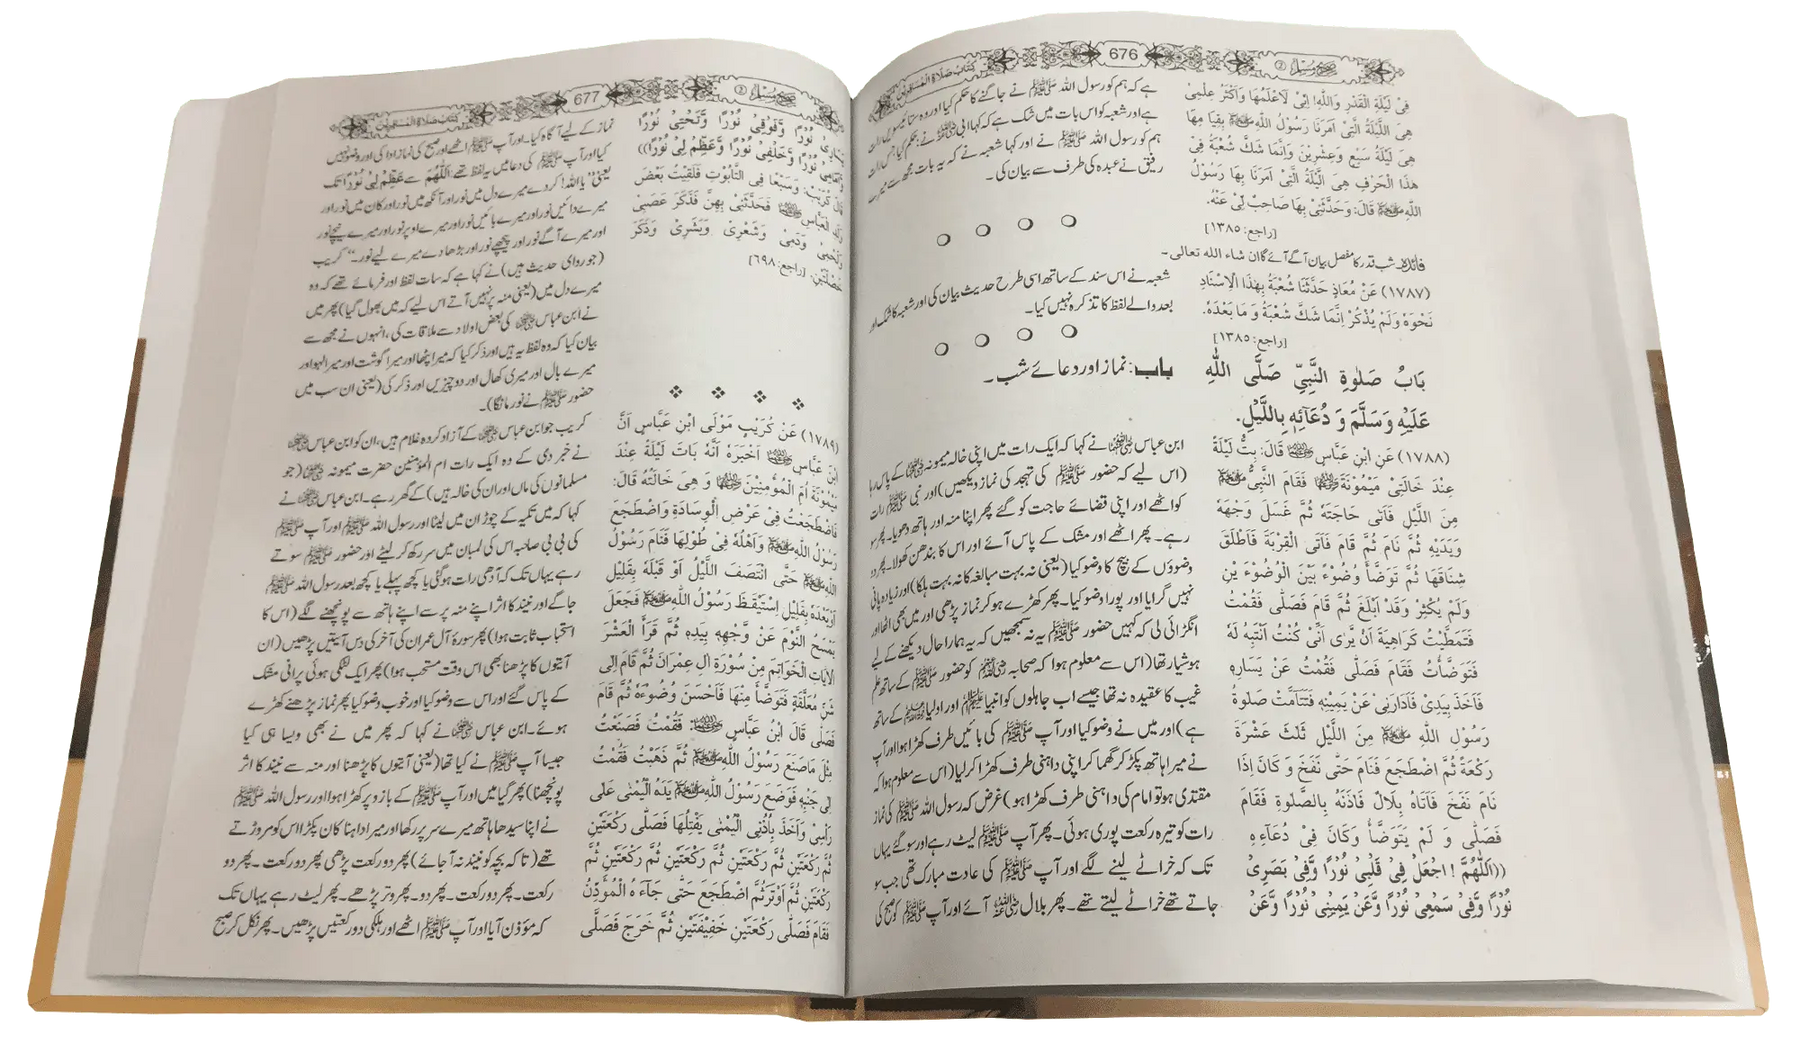 صحیح مسلم ②
676
کتاب صلاة المسافرین
فِیْ لَیْلَةِ الْقَدْرِ وَاللّٰهِ! اِنِّیْ لَاَعْلَمُهَا وَاَکْثَرُ عِلْمِیْ
هِیَ اللَّیْلَةُ الَّتِیْ اَمَرَنَا رَسُوْلُ اللّٰهِ ﷺ بِقِیَامِهَا
هِیَ لَیْلَةُ سَبْعٍ وَعِشْرِیْنَ وَاِنَّمَا شَكَّ شُعْبَةُ فِیْ
هٰذَا الْحَرْفِ هِیَ الَّلیْلَةُ الَّتِیْ اَمَرَنَا بِهَا رَسُوْلُ
اللّٰهِ ﷺ قَالَ: وَحَدَّثَنِیْ بِهَا صَاحِبٌ لِیْ عَنْهُ.
[راجع: ١٣٨٥]
فائدہ۔ شب قدر کا مفصل بیان آگے آئے گا ان شاء اللہ تعالی۔
(١٧٨٧) عَنْ مُعَاذٍ حَدَّثَنَا شُعْبَةُ بِهٰذَا الْاِسْنَادِ
نَحْوَهٗ وَلَمْ یَذْکُرْ اِنَّمَا شَكَّ شُعْبَةُ وَمَا بَعْدَهٗ.
[راجع: ١٣٨٥]
بَابُ صَلٰوةِ النَّبِیِّ صَلَّی اللّٰهُ
عَلَیْهِ وَسَلَّمَ وَ دُعَآئِهٖ بِاللَّیْلِ.
(١٧٨٨) عَنِ ابْنِ عَبَّاسٍ قَالَ: بِتُّ لَیْلَةً
عِنْدَ خَالَتِیْ مَیْمُوْنَةَ فَقَامَ النَّبِیُّ ﷺ
مِنَ اللَّیْلِ فَاَتٰی حَاجَتَهٗ ثُمَّ غَسَلَ وَجْهَهٗ
وَیَدَیْهِ ثُمَّ نَامَ ثُمَّ قَامَ فَاَتَی الْقِرْبَةَ فَاَطْلَقَ
شِنَاقَهَا ثُمَّ تَوَضَّأَ وُضُوْءً بَیْنَ الْوُضُوْءَ یْنِ
وَلَمْ یُکْثِرْ وَقَدْ اَبْلَغَ ثُمَّ قَامَ فَصَلّٰی فَقُمْتُ
فَتَمَطَّیْتُ کَرَاهِیَةَ اَنْ یَّرٰی اَنِّیْ کُنْتُ اَنْتَبِهُ لَهٗ
فَتَوَضَّأْتُ فَقَامَ فَصَلّٰی فَقُمْتُ عَنْ یَسَارِهٖ
فَاَخَذَ بِیَدِیْ فَاَدَارَنِیْ عَنْ یَمِیْنِهٖ فَتَتَآمَّتْ صَلٰوةُ
رَسُوْلِ اللّٰهِ ﷺ مِنَ اللَّیْلِ ثَلٰثَ عَشْرَةَ
رَکْعَةً ثُمَّ اضْطَجَعَ فَنَامَ حَتّٰی نَفَخَ وَ کَانَ اِذَا
نَامَ نَفَخَ فَاَتَاهُ بِلَالٌ فَاٰذَنَهٗ بِالصَّلٰوةِ فَقَامَ
فَصَلّٰی وَ لَمْ یَتَوَضَّأْ وَکَانَ فِیْ دُعَاءِهٖ
((اَللّٰهُمَّ ! اجْعَلْ فِیْ قَلْبِیْ نُوْرًا وَّفِیْ بَصَرِیْ
نُوْرًا وَّفِیْ سَمْعِیْ نُوْرًا وَّعَنْ یَمِیْنِیْ نُوْرًا وَّعَنْ
ہے کہ ہم کو رسول اللہ ﷺ نے جاگنے کا حکم کیا اور وہ ستائیسویں
ہے اور شعبہ کو اس بات میں شک ہے کہ کہا
ہم کو رسول اللہ ﷺ نے اور کہا شعبہ نے کہ یہ بات مجھ سے میرے
رفیق نے عبدہ کی طرف سے بیان کی۔
شعبہ نے اس سند کے ساتھ اسی طرح حدیث بیان کی اور شعبہ کا شک اور
بعد والے لفظ کا تذکرہ نہیں کیا۔
باب: نماز اور دعائے شب۔
ابن عباس نے کہا کہ ایک رات میں اپنی خالہ میمونہ کے پاس رہا
(اس لیے کہ حضور ﷺ کی تہجد کی نماز دیکھیں) اور نبی ﷺ رات
کو اٹھے اور اپنی قضائے حاجت کو گئے پھر اپنا منہ اور ہاتھ دھویا۔ پھر سو
رہے۔ پھر اٹھے اور مشک کے پاس آئے اور اس کا بندھن کھولا۔ پھر دو
وضوؤں کے بیچ کا وضو کیا (یعنی نہ بہت مبالغہ کا نہ بہت ہلکا) اور زیادہ پانی
نہیں گرایا اور پورا وضو کیا۔ پھر کھڑے ہو کر نماز پڑھی اور میں بھی اٹھا اور
انگڑائی لی کہ کہیں حضور ﷺ یہ نہ سمجھیں کہ یہ ہمارا حال دیکھنے کے لیے
ہوشیار تھا (اس سے معلوم ہوا کہ صحابہ کو حضور ﷺ کے ساتھ علم
غیب کا عقیدہ نہ تھا جیسے اب جاہلوں کو انبیا اور اولیا کے ساتھ
ہے) اور میں نے وضو کیا اور آپ ﷺ کی بائیں طرف کھڑا ہوا اور آپ
نے میرا ہاتھ پکڑ کر گھما کر اپنی داہنی طرف کھڑا کر لیا (اس سے معلوم ہوا کہ
مقتدی ہو تو امام کی داہنی طرف کھڑا ہو) غرض کہ رسول اللہ ﷺ کی نماز
رات کو تیرہ رکعت پوری ہوئی۔ پھر آپ ﷺ لیٹ رہے اور سو گئے یہاں
تک کہ خراٹے لینے لگے اور آپ ﷺ کی عادت مبارک تھی جب سو
جاتے تھے خراٹے لیتے تھے۔ پھر بلال آئے اور آپ ﷺ کو صبح کی
صحیح مسلم ②
677
کتاب صلاة المسافرین
نُوْرًا وَّفَوْقِیْ نُوْرًا وَّتَحْتِیْ نُوْرًا
نُوْرًا وَّخَلْفِیْ نُوْرًا وَّعَظِّمْ لِیْ نُوْرًا))
کُرَیْبٌ: وَسَبْعًا فِی التَّابُوْتِ فَلَقِیْتُ بَعْضَ
الْعَبَّاسِ فَحَدَّثَنِیْ بِهِنَّ فَذَکَرَ عَصَبِیْ
وَلَحْمِیْ وَدَمِیْ وَشَعْرِیْ وَبَشَرِیْ وَذَکَرَ
خَصْلَتَیْنِ. [راجع: ٦٩٨]
(١٧٨٩) عَنْ کُرَیْبٍ مَوْلَی ابْنِ عَبَّاسٍ اَنَّ
ابْنَ عَبَّاسٍ اَخْبَرَهٗ اَنَّهٗ بَاتَ لَیْلَةً عِنْدَ
مَیْمُوْنَةَ اُمِّ الْمُؤْمِنِیْنَ وَ هِیَ خَالَتُهٗ قَالَ:
فَاضْطَجَعْتُ فِیْ عَرْضِ الْوِسَادَةِ وَاضْطَجَعَ
رَسُوْلُ اللّٰهِ ﷺ وَاَهْلُهٗ فِیْ طُوْلِهَا فَنَامَ رَسُوْلُ
اللّٰهِ ﷺ حَتَّی انْتَصَفَ اللَّیْلُ اَوْ قَبْلَهٗ بِقَلِیْلٍ
اَوْ بَعْدَهٗ بِقَلِیْلٍ اسْتَیْقَظَ رَسُوْلُ اللّٰهِ ﷺ فَجَعَلَ
یَمْسَحُ النَّوْمَ عَنْ وَّجْهِهٖ بِیَدِهٖ ثُمَّ قَرَأَ الْعَشْرَ
الْاٰیَاتِ الْخَوَاتِمَ مِنْ سُوْرَةِ اٰلِ عِمْرَانَ ثُمَّ قَامَ اِلٰی
شَنٍّ مُعَلَّقَةٍ فَتَوَضَّأَ مِنْهَا فَاَحْسَنَ وُضُوْءَهٗ ثُمَّ قَامَ
فَصَلّٰی قَالَ ابْنُ عَبَّاسٍ: فَقُمْتُ فَصَنَعْتُ
مِثْلَ مَا صَنَعَ رَسُوْلُ اللّٰهِ ﷺ ثُمَّ ذَهَبْتُ فَقُمْتُ
اِلٰی جَنْبِهٖ فَوَضَعَ رَسُوْلُ اللّٰهِ ﷺ یَدَهُ الْیُمْنٰی عَلٰی
رَاْسِیْ وَاَخَذَ بِاُذُنِی الْیُمْنٰی یَفْتِلُهَا فَصَلّٰی رَکْعَتَیْنِ
ثُمَّ رَکْعَتَیْنِ ثُمَّ رَکْعَتَیْنِ ثُمَّ رَکْعَتَیْنِ ثُمَّ رَکْعَتَیْنِ ثُمَّ
رَکْعَتَیْنِ ثُمَّ اَوْتَرَ ثُمَّ اضْطَجَعَ حَتّٰی جَآءَ هُ الْمُؤَذِّنُ
فَقَامَ فَصَلّٰی رَکْعَتَیْنِ خَفِیْفَتَیْنِ ثُمَّ خَرَجَ فَصَلَّی
نماز کے لیے آگاہ کیا۔ اور آپ ﷺ اٹھے اور صبح کی نماز ادا کی اور وضو نہیں
کیا اور آپ ﷺ کی دعا میں یہ لفظ تھے: اَللّٰهُمَّ سے عَظِّمْ لِیْ نُوْرًا تک
یعنی ”یا اللہ! کر دے میرے دل میں نور اور آنکھ میں نور اور کان میں نور اور
میرے دائیں نور اور میرے بائیں نور اور میرے اوپر نور اور میرے نیچے نور
اور میرے آگے نور اور پیچھے نور اور بڑھا دے میرے لیے نور۔“ کریب
(جو راوی حدیث ہیں) نے کہا ہے کہ سات لفظ اور فرمائے تھے کہ وہ
میرے دل میں (یعنی منہ پر نہیں آتے اس لیے کہ میں بھول گیا) پھر میں
نے ابن عباس کی بعض اولاد سے ملاقات کی، انہوں نے مجھ سے
بیان کیا کہ وہ لفظ یہ ہیں اور ذکر کیا کہ میرا پٹھا اور میرا گوشت اور میرا لہو اور
میرے بال اور میری کھال اور دو چیزیں اور ذکر کی (یعنی ان سب میں
حضور ﷺ نے نور مانگا)۔
کریب جو ابن عباس کے آزاد کردہ غلام ہیں، ان کو ابن عباس
نے خبر دی کہ وہ ایک رات ام المؤمنین حضرت میمونہ (جو
مسلمانوں کی ماں اور ان کی خالہ ہیں) کے گھر رہے۔ ابن عباس نے
کہا کہ میں تکیہ کے چوڑان میں لیٹا اور رسول اللہ ﷺ اور آپ ﷺ
کی بی بی صاحبہ اس کی لمبان میں سر رکھ کر لیٹے اور حضور ﷺ سوتے
رہے یہاں تک کہ آدھی رات ہوگئی یا کچھ پہلے یا کچھ بعد رسول اللہ ﷺ
جاگے اور نیند کا اثر اپنے منہ پر سے اپنے ہاتھ سے پونچھنے لگے (اس کا
استحباب ثابت ہوا) پھر سورۂ آل عمران کی آخر کی دس آیتیں پڑھیں (ان
آیتوں کا پڑھنا بھی اس وقت مستحب ہوا) پھر ایک لٹکی ہوئی پرانی مشک
کے پاس گئے اور اس سے وضو کیا اور خوب وضو کیا پھر نماز پڑھنے کھڑے
ہوئے۔ ابن عباس نے کہا کہ پھر میں نے بھی ویسا ہی کیا
جیسا آپ ﷺ نے کیا تھا (یعنی آیتوں کا پڑھنا اور منہ سے نیند کا اثر
پونچھنا) پھر گیا میں اور آپ ﷺ کے بازو پر کھڑا ہوا اور رسول اللہ ﷺ
نے اپنا سیدھا ہاتھ میرے سر پر رکھا اور میرا داہنا کان پکڑا اس کو مروڑتے
تھے (تاکہ بچہ کو نیند نہ آ جائے) پھر دو رکعت پڑھی پھر دو رکعت۔ پھر دو
رکعت۔ پھر دو رکعت۔ پھر دو۔ پھر دو۔ پھر وتر پڑھے۔ پھر لیٹ رہے یہاں تک
کہ مؤذن آیا اور آپ ﷺ اٹھے اور ہلکی دو رکعتیں پڑھیں۔ پھر نکل کر صبح